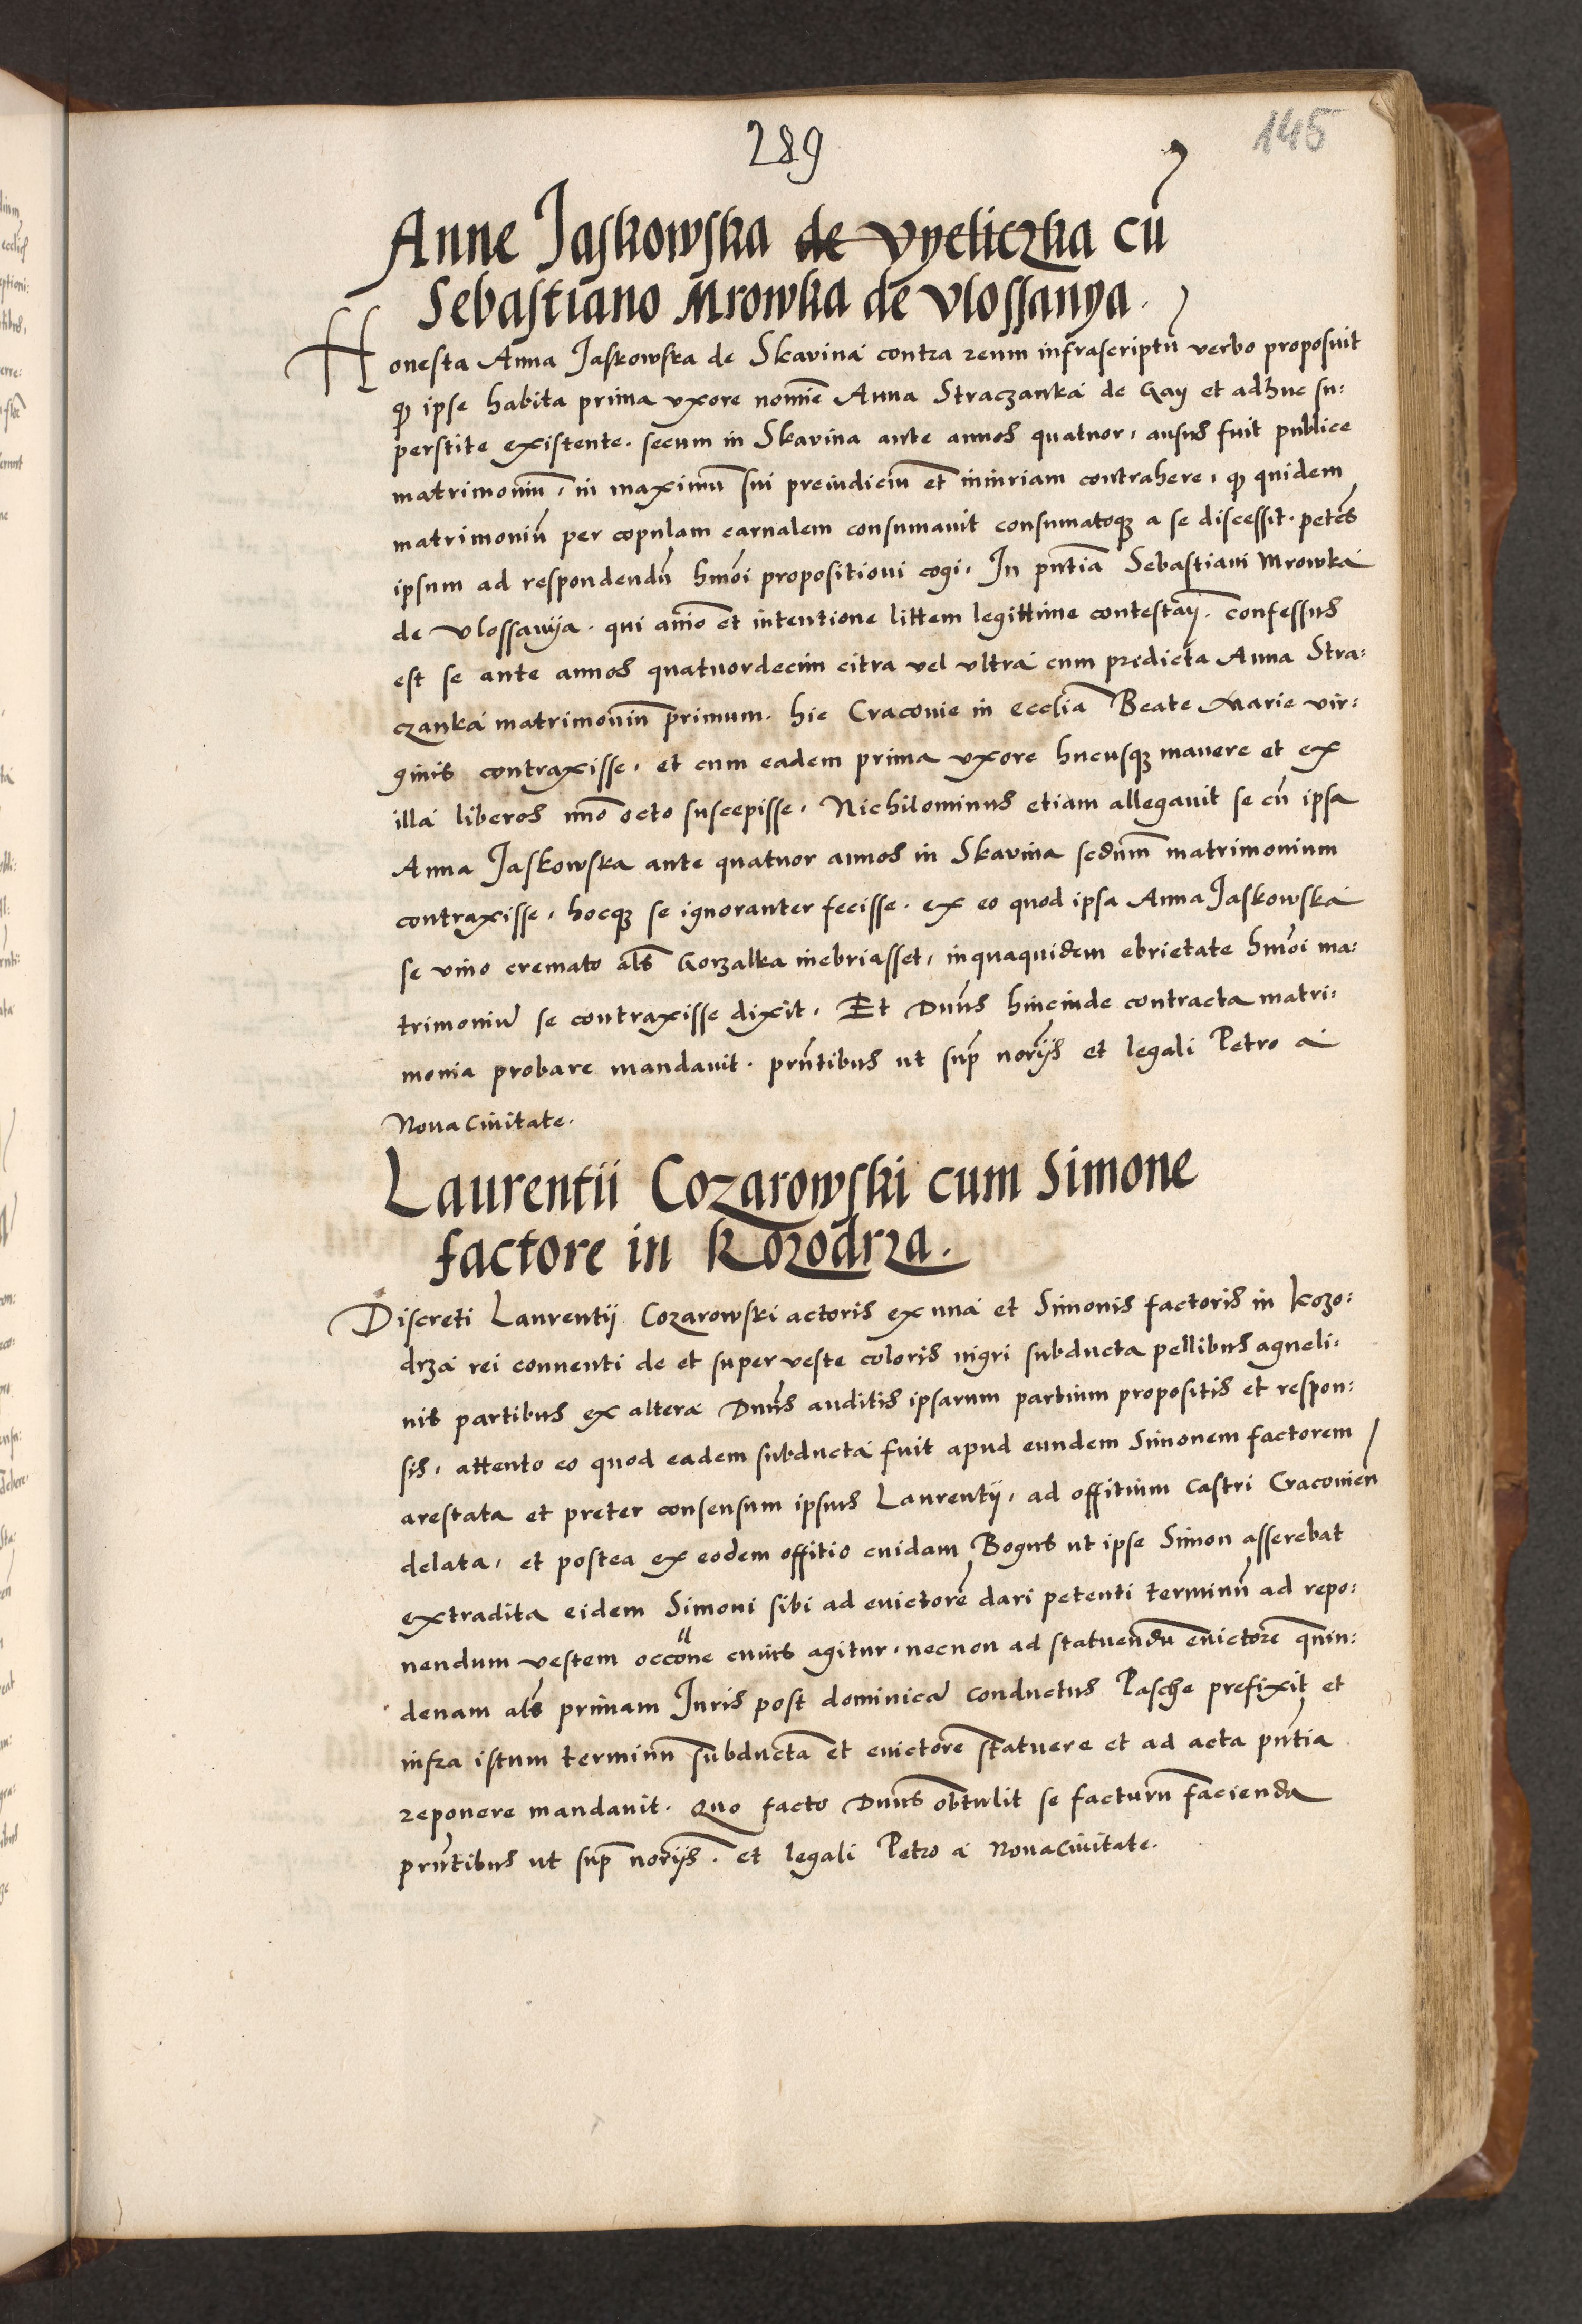 289
145
Anne Jaskowska de Vyeliczka cū
Sebastiano Mrowka de Vlossanya.
Honesta Anna Jaskowska de Skavina contra reum infrascriptū verbo proposuit
qꝫ ipse habita prima uxore noīe Anna Straczanka de Gay et adhuc su:
perstite existente. secum in Skavina ante annos quatuor, ausus fuit publice
matrimoniū, in maximū sui preiudiciū et iniuriam contrahere, qꝫ quidem
matrimoniū per copulam carnalem consumavit consumatoqꝫ a se discessit. petēs
ipsum ad respondendū hmōi propositioni cogi. In pn̄tia Sebastiani Mrowka
de Vlossanya. qui aīo et intentione littem legittime contestaņ. confessus
est se ante annos quatuordecim citra vel ultra cum predicta Anna Stra:
czanka matrimoniū primum. hic Cracovie in ecclīa Beate Marie vir:
ginis contraxisse, et cum eadem prima uxore hucusqꝫ manere et ex
illa liberos īmo octo suscepisse. Nichilominus etiam allegavit se cū ipsa
Anna Jaskowska ante quatuor annos in Skavina sedūm matrimonium
contraxisse, hocqꝫ se ignoranter fecisse. ex eo quod ipsa Anna Jaskowska
se vino cremato als̄ Gorzalka inebriasset, inquaquidem ebrietate hmōi ma:
trimoniū se contraxisse dixit. Et Dn̄us hincinde contracta matri:
monia probare mandavit. prn̄tibus ut sup̄ norijs et legali Petro a
Nova Civitate.
Laurentii Cozarowski cum Simone
factore in Kozodrza.
Discreti Laurentij Cozarowski actoris ex una et Simonis factoris in Kozo:
drza rei conventi de et super veste coloris nigri subducta pellibus agneli:
nis partibus ex altera Dn̄us auditis ipsarum partium propositis et respon:
sis, attento eo quod eadem subducta fuit apud eundem Simonem factorem
arestata et preter consensum ipsius Laurentij, ad offitium Castri Cracovien̄
delata, et postea ex eodem offitio cuidam Bogus ut ipse Simon asserebat
extradita eidem Simoni sibi ad evictorē dari petenti terminū ad repo:
nendum vestem occōne cuius agitur, necnon ad statuendū evictorē quin:
denam als̄ primam Juris post dominicā conductus Pasche prefixit et
infra istum terminū subductā et evictorē statuere et ad acta pn̄tia
reponere mandavit. Quo facto Dn̄us obtulit se facturū facienda
prn̄tibus ut sup̄ norijs. et legali Petro a Nova Civitate.